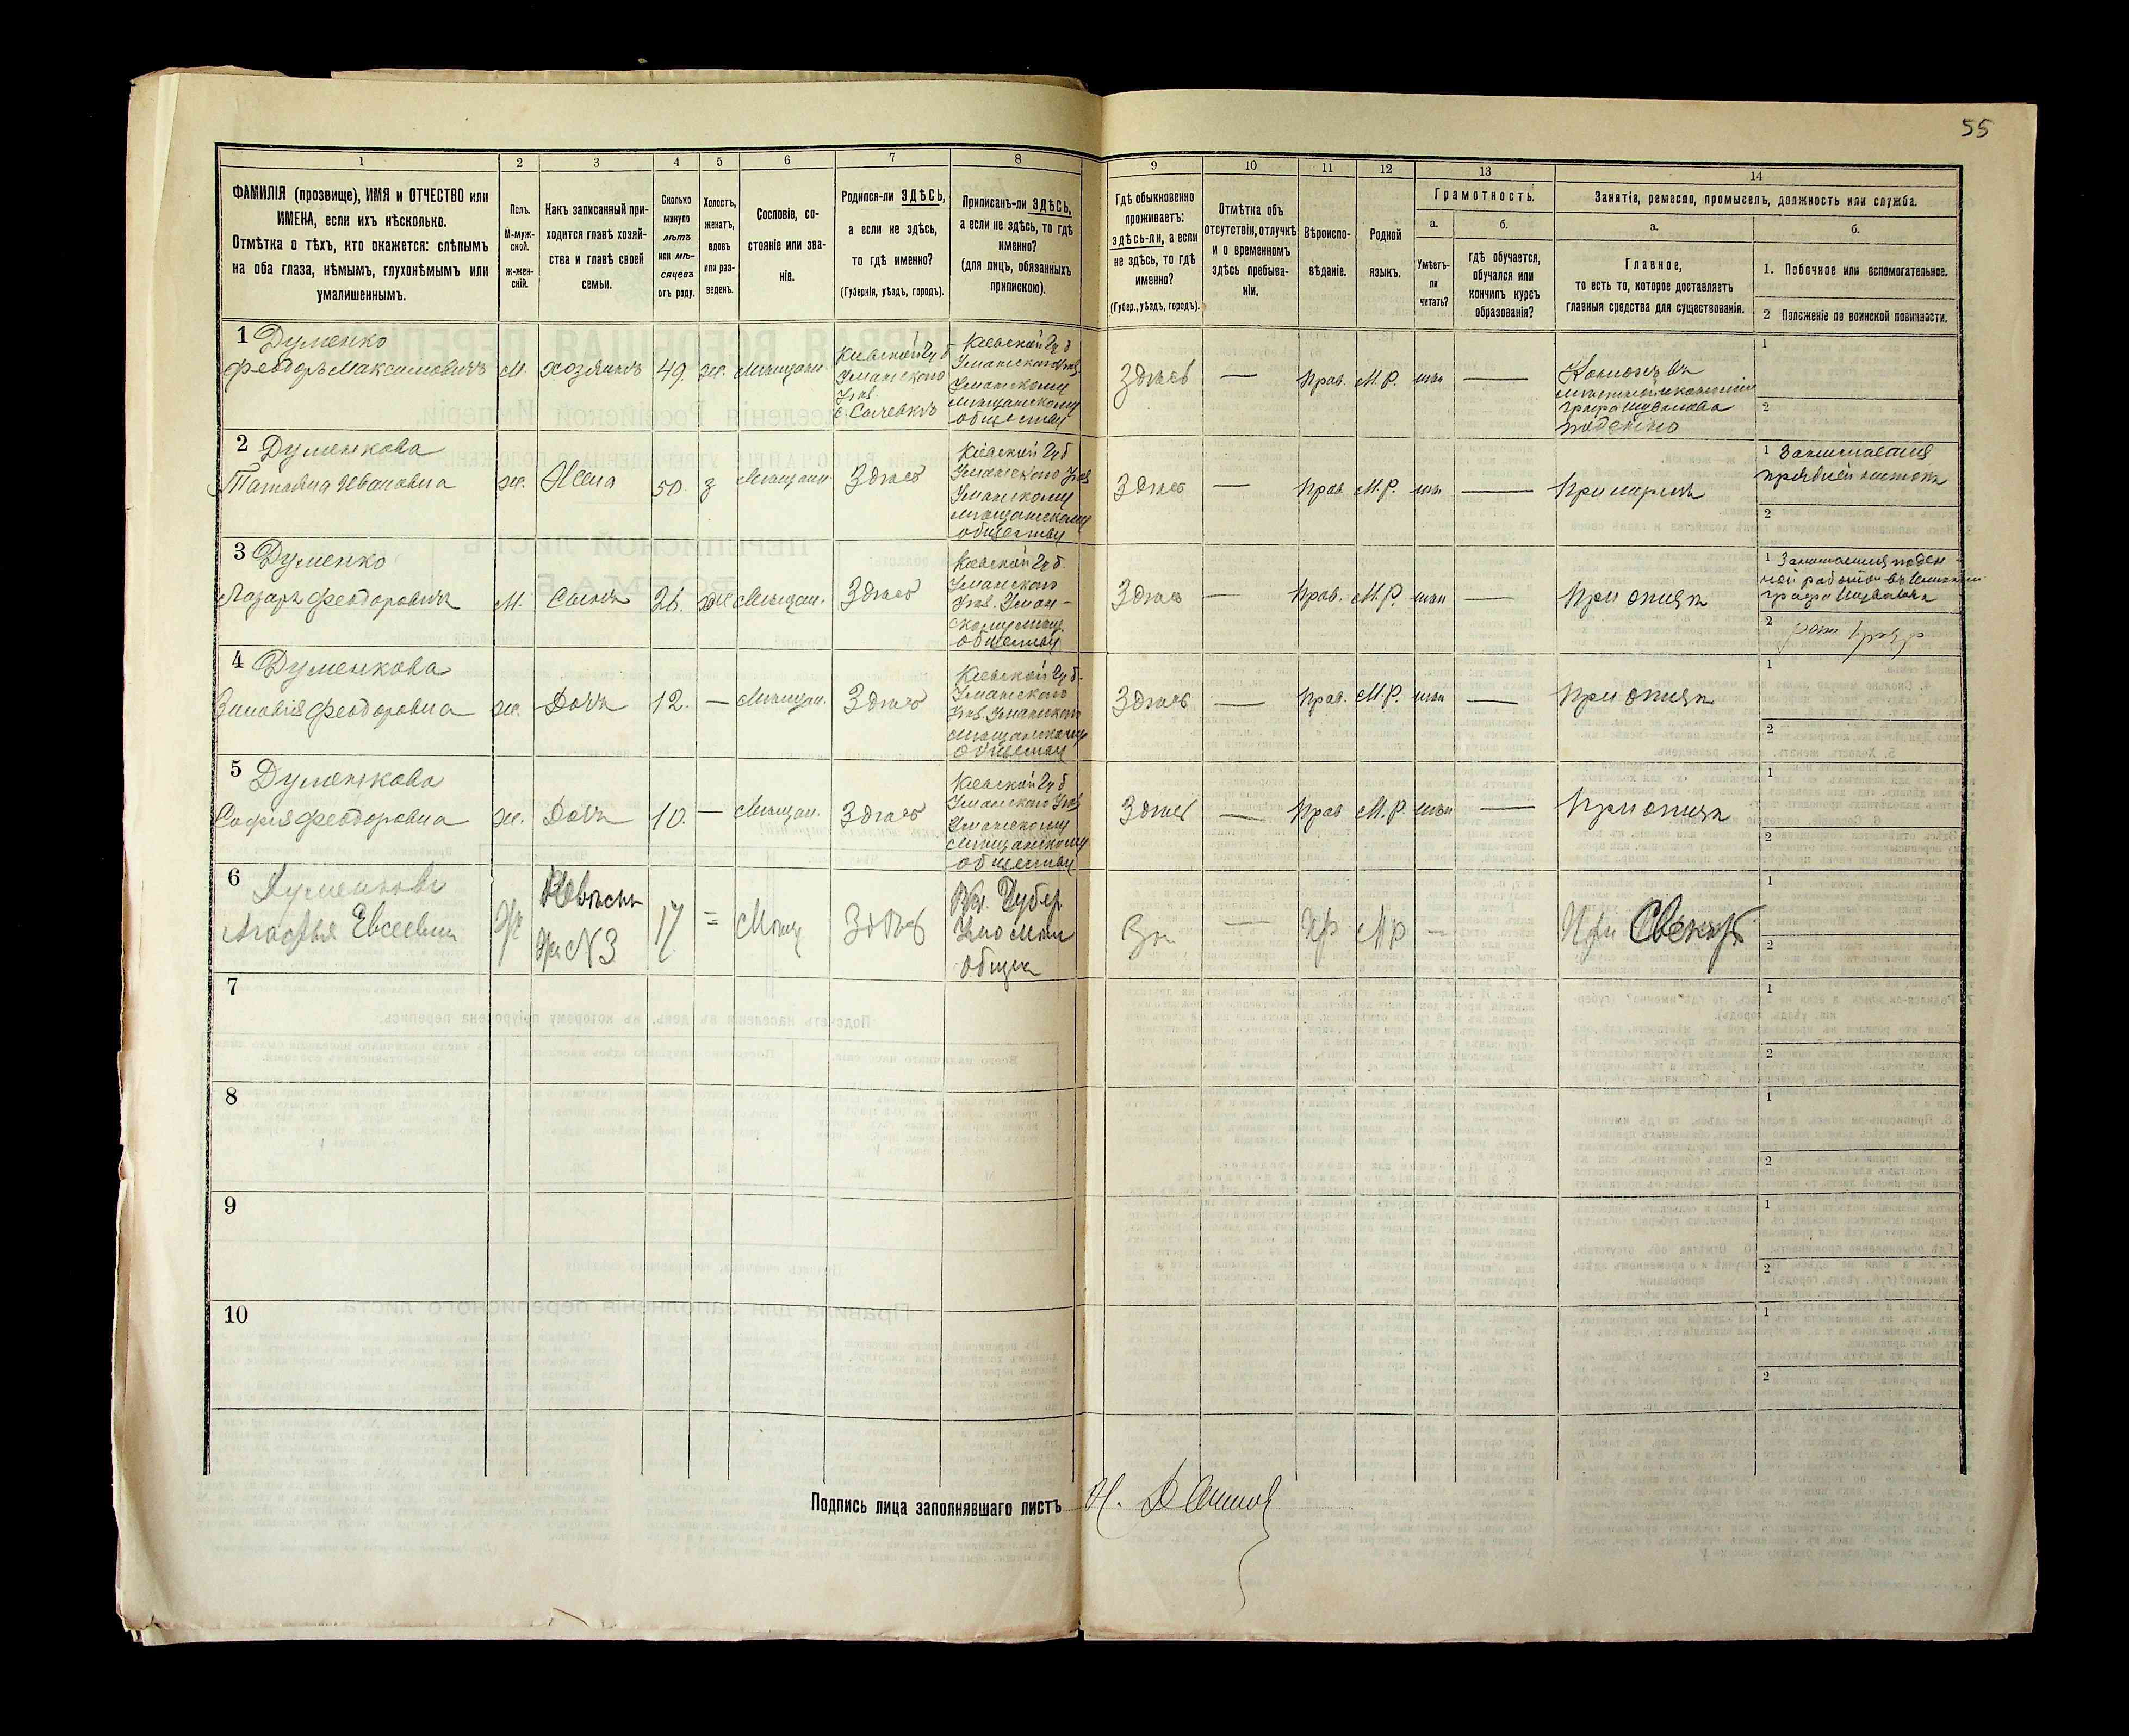 55
1
2
3
4
5
6
7
8
9
10
11
12
13
14
ФАМИЛІЯ (прозвище), ИМЯ и ОТЧЕСТВО или
ИМЕНА, если ихъ нѣсколько.
Отмѣтка о тѣхъ, кто окажется: слѣпымъ
на оба глаза, нѣмымъ, глухонѣмымъ или
умалишеннымъ.
Полъ.
М-муж-
ской.
ж-жен-
скій.
Какъ записанный при-
ходится главѣ хозяй-
ства и главѣ своей
семьи.
Сколько
минуло
лѣтъ
или мѣ-
сяцевъ
отъ роду.
Холостъ,
женатъ,
вдовъ
или раз-
веденъ.
Сословіе, со-
стояніе или зва-
ніе.
Родился-ли ЗДѢСЬ,
а если не здѣсь,
то гдѣ именно?
(Губернія, уѣздъ, городъ).
Приписанъ-ли ЗДѢСЬ,
а если не здѣсь, то гдѣ
именно?
(для лицъ, обязанныхъ
припискою).
Гдѣ обыкновенно
проживаетъ:
здѣсь-ли, а если
не здѣсь, то гдѣ
именно?
(Губер., уѣздъ, городъ).
Отмѣтка объ
отсутствіи, отлучкѣ
и о временномъ
здѣсь пребыва-
ніи.
Вѣроиспо-
вѣданіе.
Родной
языкъ.
Грамотность.
а.
Умѣетъ-
ли
читать?
б.
гдѣ обучается,
обучался или
кончилъ курсъ
образованія?
Занятія, ремесло, промыселъ, должность или служба.
а.
Главное,
то есть то, которое доставляетъ
главныя средства для существованія.
б.
1. Побочное или вспомогательное.
2 Положеніе по воинской повинности.
1 Думенко
Феодоръ Максимовичъ М. хозяинъ 49. ж. Мѣщан.
Кіевской Губ
Уманского
Уѣз.
с. Сычевкѣ
Кіевской Губ
Уманского Уѣз
Уманскому
мѣщанскому
обществу
Здѣсь — Прав. М.Р. —
графа Шувалова
1
2
2 Думенкова
Татьяна Ивановна ж. Жена 50. з Мѣщан. Здѣсь
Кіевской Губ
Уманского Уѣз
Уманскому
мѣщанскому
обществу
Здѣсь — Прав. М.Р. —
1 Занимается
2
3 Думенко
Лазарь Феодоровичъ М. Сынъ 26. Мѣщан. Здѣсь
Кіевской Губ.
Уманского
Уѣз. Уман-
скому мѣщ.
обществу
Здѣсь — Прав. М.Р. — При отцѣ
1 Занимается поден-
ной работой въ
графа Шувалова
2
4 Думенкова
Зиновія Феодоровна ж. Дочь 12. — Мѣщан. Здѣсь
Кіевской Губ.
Уманского
Уѣз. Уманскому
мѣщанскому
обществу
Здѣсь — Прав. М.Р. — При отцѣ
1
2
5 Думенкова
Софія Феодоровна ж. Дочь 10. — Мѣщан. Здѣсь
Кіевской Губ
Уманского Уѣз
Уманскому
мѣщанскому
обществу
Здѣсь — Прав М.Р. — При отцѣ
1
2
6 Думенкова
Агафья Евсеевна Ж Невѣстка
N 3 17 = Мѣщ Здѣсь
Губер.
Общес
— Пр МР — При Свекрѣ
1
2
7
1
2
8
1
2
9
1
2
10
1
2
Подпись лица заполнявшаго листъ